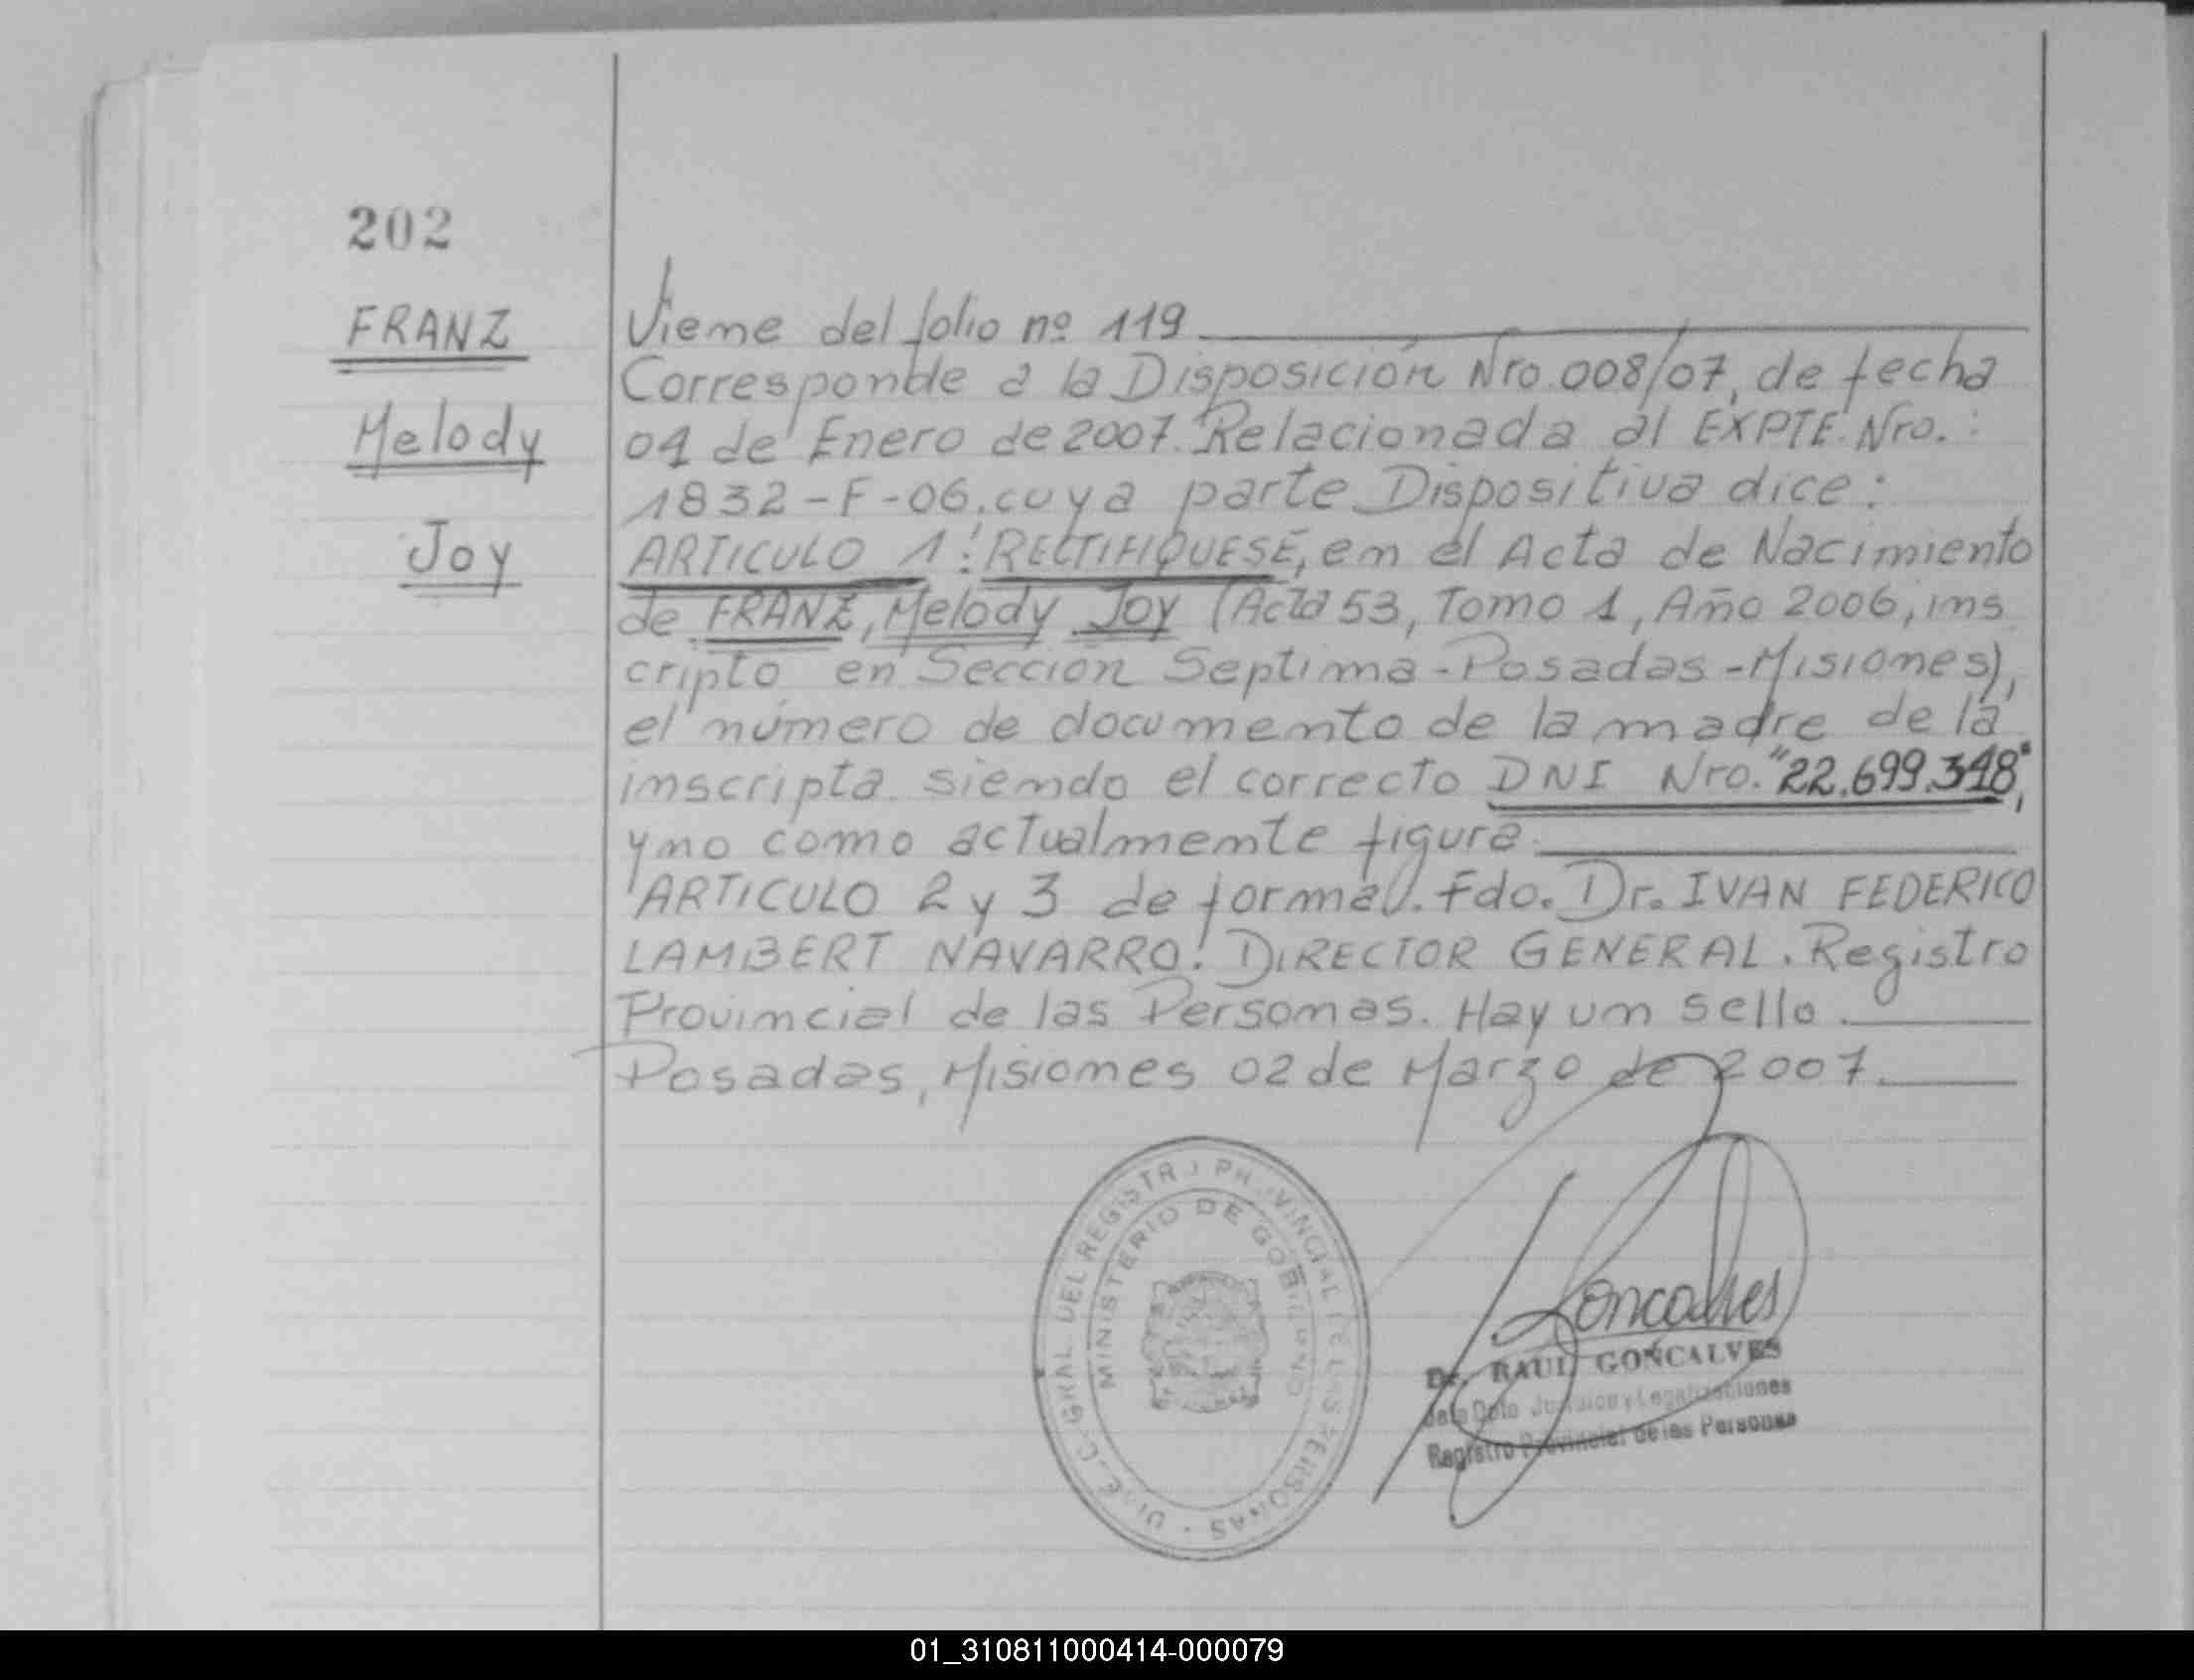 202
FRANZ
Melody
Joy
Viene del folio nº 119
Corresponde a la Disposición Nro. 008/07, de fecha
04 de Enero de 2007. Relacionada al EXPTE. Nro.:
1832-F-06. cuya parte Dispositiva dice:
ARTICULO 1: RECTIFIQUESE, en el Acta de Nacimiento
de FRANZ, Melody Joy (Acta 53, Tomo 1, Año 2006, ins
cripto en Sección Septima-Posadas-Misiones),
el número de documento de la madre de la
inscripta. siendo el correcto DNI Nro. "22.699.348",
y no como actualmente figura.
ARTICULO 2 y 3 de forma. Fdo. Dr. IVAN FEDERICO
LAMBERT NAVARRO. DIRECTOR GENERAL. Registro
Provincial de las Personas. Hay un sello.
Posadas, Misiones 02 de Marzo de 2007.
GRAL DEL REGISTRO PROVINCIAL DE LAS PERSONAS
MINISTERIO DE GOBIERNO
Goncalves
Dr. RAUL GONCALVES
Jefe Dpto Jurídico y Legalizaciones
Registro Provincial de las Personas
01_310811000414-000079